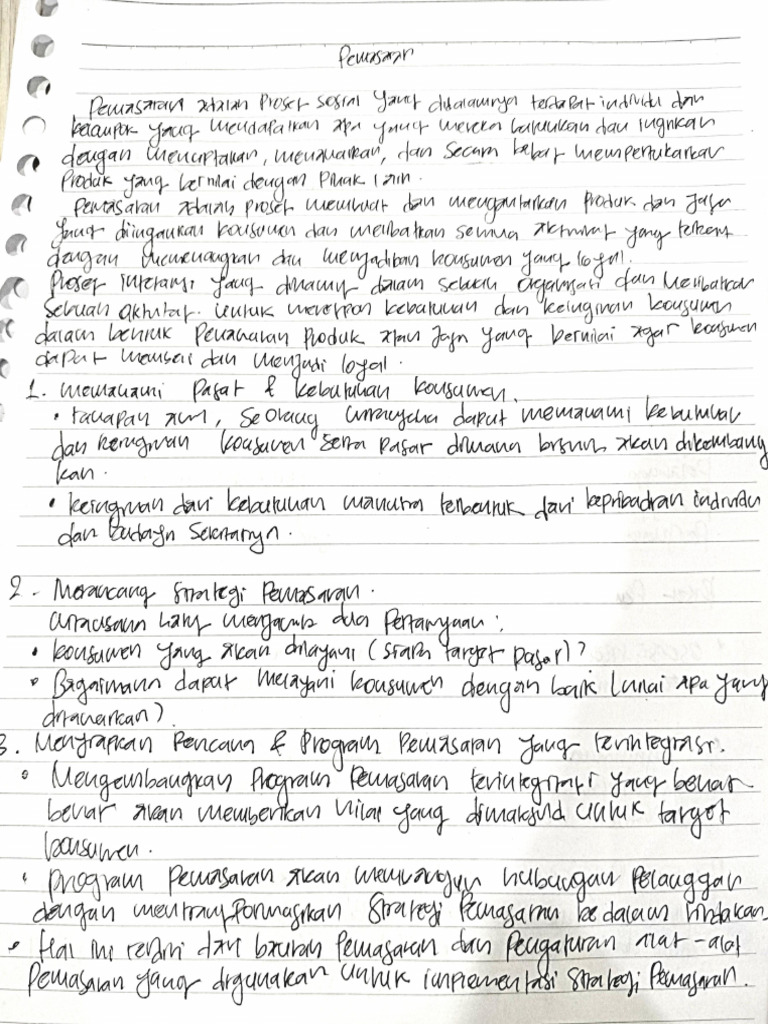 Pemasaran
Pemasaran adalah proses sosial yang didalamnya terdapat individu dan
kelompok yang mendapatkan apa yang mereka butuhkan dan inginkan
dengan menciptakan, menawarkan, dan secara bebas mempertukarkan
Produk yang bernilai dengan Pihak lain.
Pemasaran adalah proses membuat dan mengantarkan Produk dan Jasa
yang diinginkan konsumen dan melibatkan semua aktivitas yang terkait
dengan memenangkan dan menjadikan konsumen yang loyal.
Proses interaksi yang dinamis dalam sebuah organisasi dan melibatkan
sebuah aktivitas untuk merespon kebutuhan dan keinginan konsumen
dalam bentuk Penawaran Produk atau Jasa yang bernilai agar konsumen
dapat membeli dan menjadi loyal.
1. Memahami Pasar & kebutuhan konsumen.
• tahapan awal, seorang wirausaha dapat memahami kebutuhan
dan keinginan konsumen serta Pasar dimana bisnis akan dikembang
kan.
• keinginan dari kebutuhan manusia terbentuk dari kepribadian individu
dan budaya sekitarnya.
2. Merancang Strategi Pemasaran.
wirausaha harus menjawab dua Pertanyaan:
• konsumen yang akan dilayani (siapa target pasar)?
• Bagaimana dapat melayani konsumen dengan baik (nilai apa yang
ditawarkan).
3. Menyiapkan Rencana & Program Pemasaran yang terintegrasi.
• Mengembangkan Program Pemasaran terintegrasi yang benar
benar akan memberikan nilai yang dimaksud untuk target
konsumen.
• Program Pemasaran akan membangun hubungan Pelanggan
dengan mentransformasikan Strategi Pemasaran ke dalam tindakan.
• Hal ini terdiri dari bauran Pemasaran dan Pengaturan alat-alat
Pemasaran yang digunakan untuk implementasi Strategi Pemasaran.